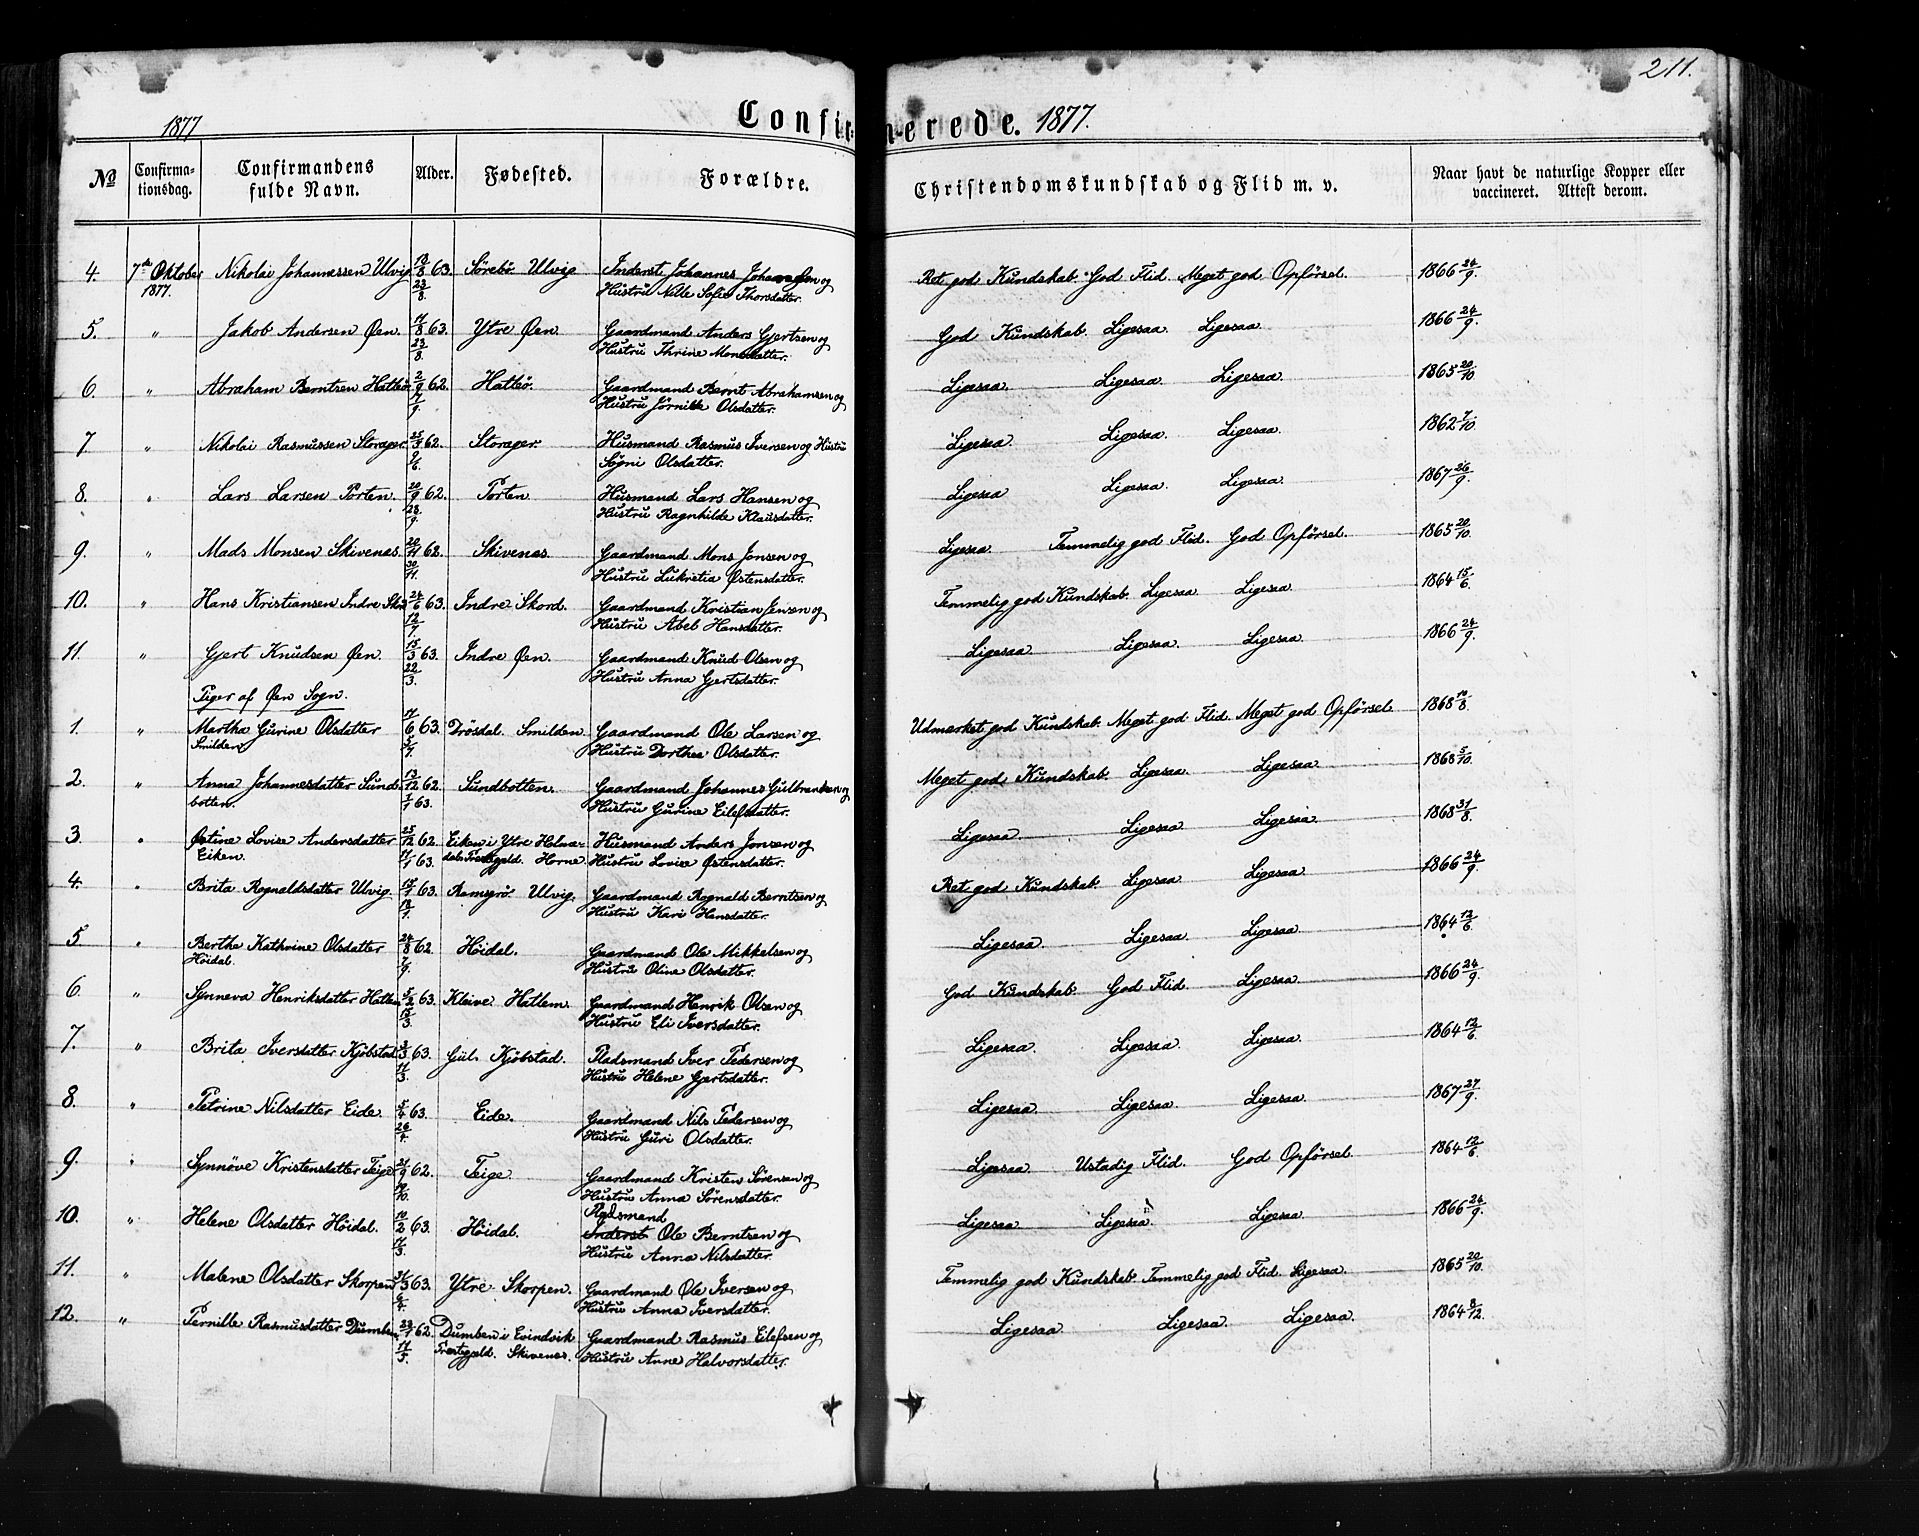 211.
1877
Confirmerede. 1877.
№ Confirmationsdag. Confirmandens fulde Navn. Alder. Fødested. Forældre. Christendomskundskab og Flid m. v. Naar havt de naturlige Kopper eller vaccineret. Attest derom.
4. 7de Oktober 1877. Nikolai Johannessen Ulvig 63. Sørebø Ulvig Inderst Johannes Johannesen og Hustru Nille Sofie Thorsdatter. Ret god Kundskab. God Flid. Meget god Opførsel. 1866 24/9.
5. " Jakob Andersen Øen. 63. Ytre Øen. Gaardmand Anders Gjertsen og Hustru Thrine Monsdatter. God Kundskab. Ligesaa. Ligesaa. 1866 24/9.
6. " Abraham Berntsen Hatlø. 2/9 62. Hatlø. Gaardmand Bernt Abrahamsen og Hustru Jørnikke Olsdatter. Ligesaa. Ligesaa. Ligesaa. 1865 20/10.
7. " Nikolai Rasmussen Storager. 25/3 62. Storager. Husmand Rasmus Iversen og Hustru Søgni Olsdatter. Ligesaa. Ligesaa. Ligesaa. 1862 7/10.
8. " Lars Larsen Porten. 20/9 62. 28/9. Porten. Husmand Lars Hansen og Hustru Ragnhilde Klausdatter. Ligesaa Ligesaa. Ligesaa. 1867 26/9.
9. " Mads Monsen Skivenes. 20/11 62. 30/11. Skivenes. Gaardmand Mons Jonsen og Hustru Lukretia Østensdatter. Ligesaa. Temmelig god Flid. God Opførsel. 1865 20/10.
10. " Hans Kristiansen Indre Skor 24/6 63. 12/7. Indre Skord. Gaardmand Kristian Jensen og Hustru Abel Hansdatter. Temmelig god Kundskab. Ligesaa. Ligesaa. 1864 15/6.
11. " Gjert Knudsen Øen. 15/3 63. 22/3. Indre Øen. Gaardmand Knud Olsen og Hustru Anna Gjertsdatter. Ligesaa. Ligesaa. Ligesaa. 1866 24/9.
Piger af Øen Sogn.
1. " Martha Gurine Olsdatter Smilden 63. Drøsdal Smilden Gaardmand Ole Larsen og Hustru Dorthea Olsdatter. Udmærket god Kundskab. Meget god Flid. Meget god Opførsel. 1868 10/8.
2. " Anna Johannesdatter Sundbotten. 13/12 62. 1/1 63. Sundbotten. Gaardmand Johannes Gulbrandsen og Hustru Gurine Eilefsdatter. Meget god Kundskab. Ligesaa. Ligesaa. 1868 5/10.
3. " Østine Lovise Andersdatter Eiken. 25/12 62. 11/1 63. Eiken i Ytre Holmedals Præstegjeld. Horne. Husmand Anders Jonsen og Hustru Lovise Østensdatter. Ligesaa. Ligesaa. Ligesaa. 1868 31/8.
4. " Brita Rognaldsdatter Ulvig. 63. Ramsgrø Ulvig. Gaardmand Rognald Berntsen og Hustru Kari Hansdatter. Ret god Kundskab. Ligesaa. Ligesaa. 1866 24/9.
5 " Berthe Kathrine Olsdatter Høidal. 24/8 62. 7/9. Høidal. Gaardmand Ole Mikkelsen og Hustru Oline Olsdatter. Ligesaa. Ligesaa. Ligesaa. 1864 12/6.
6. " Synneva Henriksdatter Hatlem 5/2 63. 15/3. Kleive Hatlem. Gaardmand Henrik Olsen og Hustru Eli Iversdatter. God Kundskab. God Flid. Ligesaa. 1866 24/9.
7. " Brita Iversdatter Kjøbstad 63. Gul. Kjøbstad. Pladsmand Iver Pedersen og Hustru Helene Gjertsdatter. Ligesaa. Ligesaa. Ligesaa. 1864 12/6.
8. " Petrine Nilsdatter Eide. 5/4 63. 26/4. Eide. Gaardmand Nils Pedersen og Hustru Guri Olsdatter. Ligesaa. Ligesaa. Ligesaa. 1867 27/9.
9. " Synnøve Kristensdatter Teige 62. Teige. Gaardmand Kristen Sørensen og Hustru Anna Sørensdatter. Ligesaa Ustadig Flid. God Opførsel. 1864 12/6.
10. " Helene Olsdatter Høidal. 10/2 63. 11/3. Høidal. Pladsmand Inderst Ole Berntsen og Hustru Anna Nilsdatter. Ligesaa Ligesaa. Ligesaa. 1866 24/9.
11. " Malene Olsdatter Skorpen 63. 6/4. Ytre Skorpen. Gaardmand Ole Iversen og Hustru Anna Iversdatter. Temmelig god Kundskab. Temmelig god Flid. Ligesaa. 1865 20/10.
12. " Pernille Rasmusdatter Dumben 62. Dumben i Evindvik Præstegjeld. Skivenes. Gaardmand Rasmus Eilefsen og Hustru Anne Halvorsdatter. Ligesaa. Ligesaa. Ligesaa. 1864 8/12.